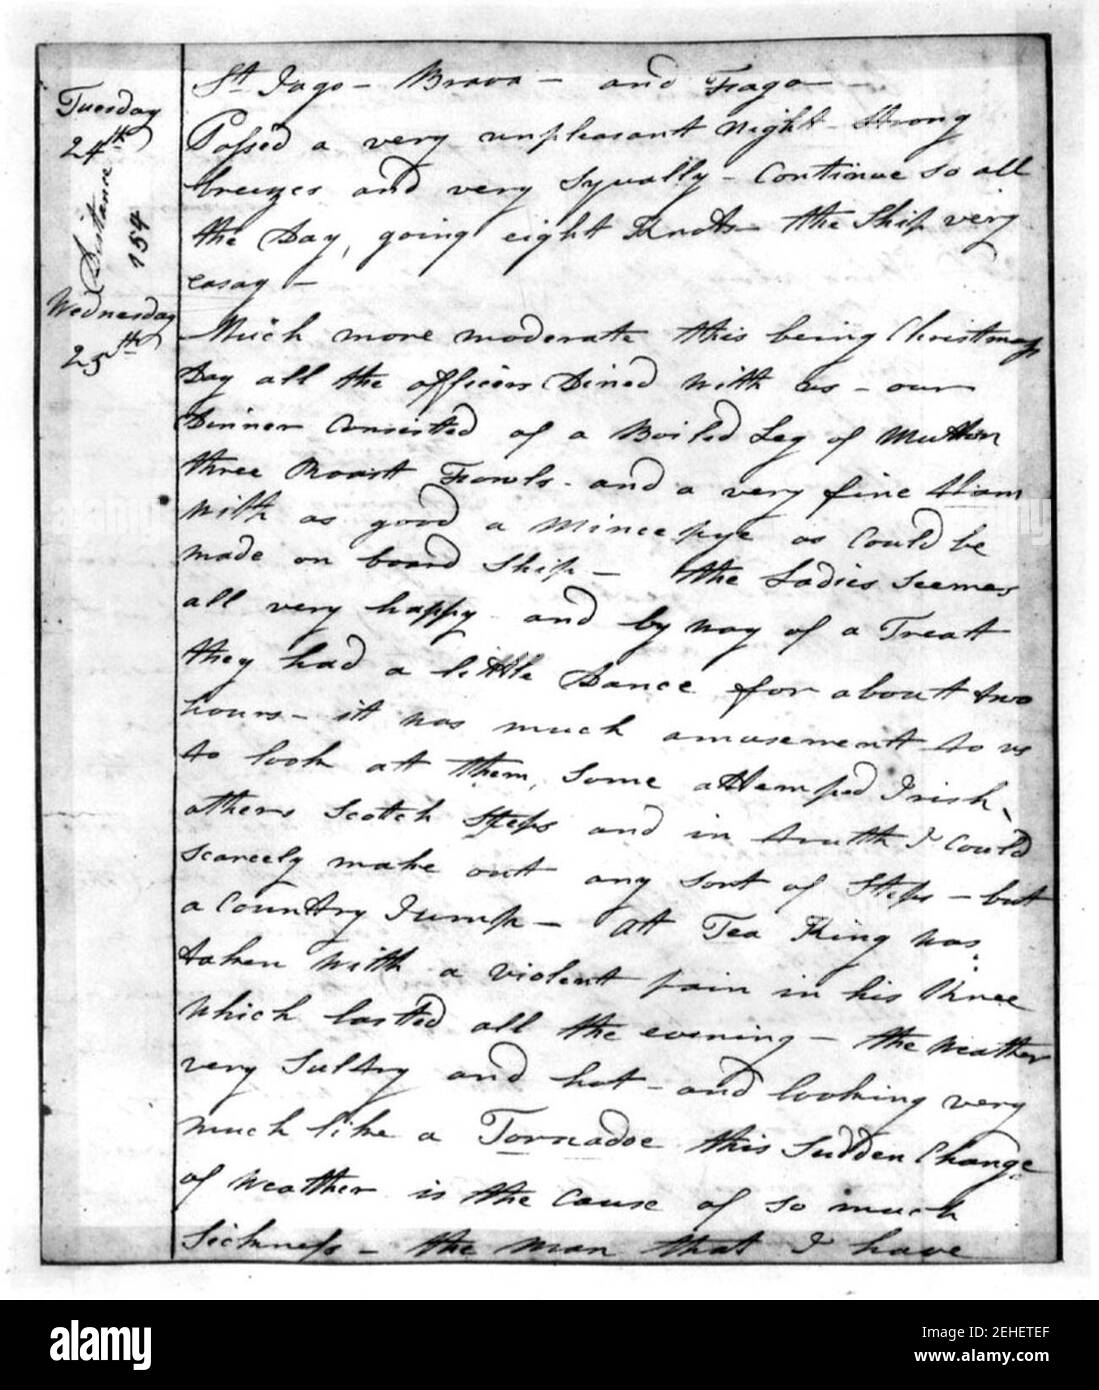 St Jago – Brava – and Foago –
Tuesday
24th
Distance
154
Passed a very unpleasant Night – Strong
breezes and very Squally – Continue so all
the Day, going eight Knots – the Ship very
easay –
Wednesday
25th
Much more moderate this being Christmas
Day all the officers Dined with us – our
Dinner Consisted of a Boiled Leg of Mutton
three Roast Fowls – and a very fine Ham
With as good a Mince pye as Could be
made on board Ship – the Ladies Seemed
all very happy – and by way of a Treat
they had a little Dance for about two
hours – it was much amusement to us
to look at them, Some attemped Irish,
others Scotch Steps and in truth I Could
scarcely make out any sort of Steps – but
a Country Jump – At Tea King was
taken with a violent pain in his Knee
which lasted all the evening – the Weather
very Sultry and hot – and looking very
much like a Tornadoe this Sudden Change
of Weather is the Cause of so much
Sickness – the man that I have
alamy
Image ID: 2EHETEF
www.alamy.com